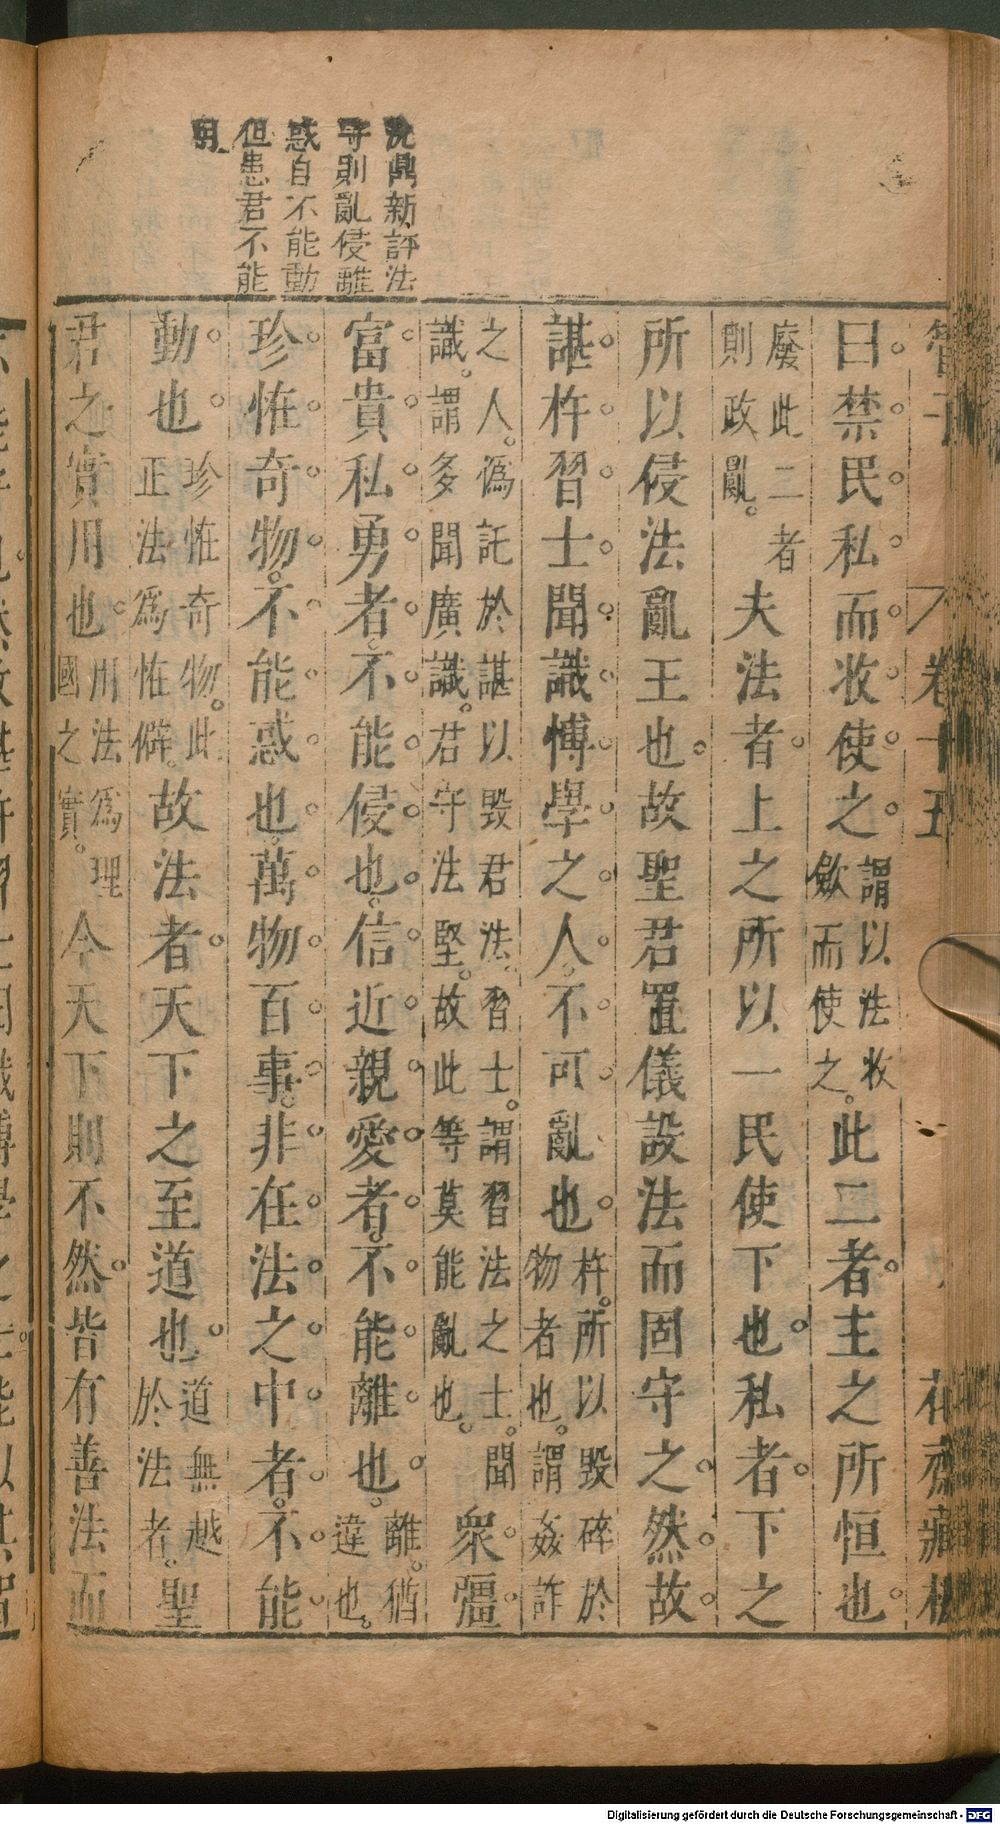 沈鼎新評法
守則亂侵離
惑自不能動
但患君不能
用
管子 卷十五 花齋藏板
曰禁民私而收使之謂以法收歛而使之此二者主之所恒也
廢此二者則政亂夫法者上之所以一民使下也私者下之
所以侵法亂王也故聖君置儀設法而固守之然故
諶杵習士聞識慱學之人不可亂也杵所以毀碎於物者也謂姦詐
之人僞託於諶以毀君法習士謂習法之士聞識謂多聞廣識君守法堅故此等莫能亂也衆彊
富貴私勇者不能侵也信近親愛者不能離也離猶違也
珍恠奇物不能惑也萬物百事非在法之中者不能
動也珍恠奇物此正法爲恠僻故法者天下之至道也道無越於法者聖
君之實用也用法爲理國之實今天下則不然皆有善法而
Digitalisierung gefördert durch die Deutsche Forschungsgemeinschaft - DFG